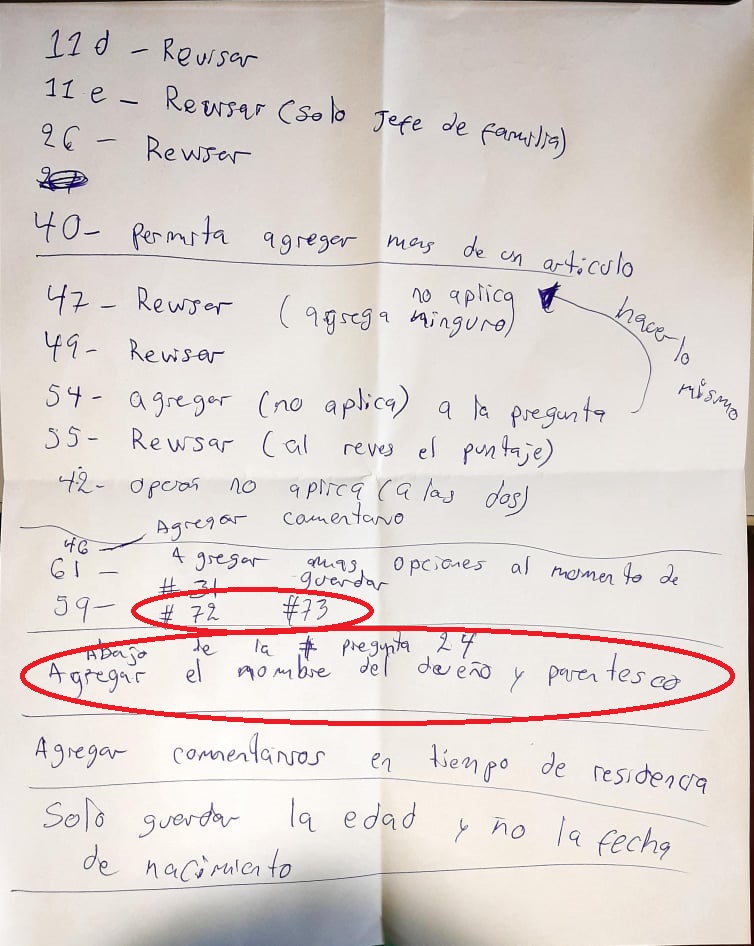 11d - Revisar
11e - Revisar (solo Jefe de familia)
26 - Revisar
40- permita agregar mas de un articulo
47 - Revisar (agrega ninguno) no aplica
hacerlo mismo
49- Revisar
54- agregar (no aplica) a la pregunta
55- Revisar (al reves el puntaje)
42- opcion no aplica (a las dos)
46 - Agregar comentario
61 - Agregar mas opciones al momento de guardar
# 31
59- # 72 #73
Abajo de la # pregunta 24
Agregar el nombre del dueño y parentesco
Agregar comentarios en tiempo de residencia
Solo guardar la edad y no la fecha
de nacimiento